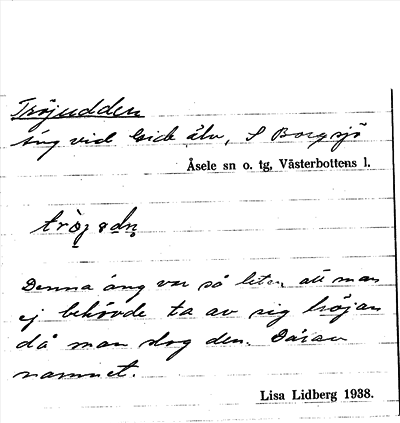 Tröjudden
äng vid Gide älv, S Borgsjö
Åsele sn o. tg, Västerbottens l.
Denna äng var så liten att man
ej behövde ta av sig tröjan
då man slog den. Därav
namnet.
Lisa Lidberg 1938.